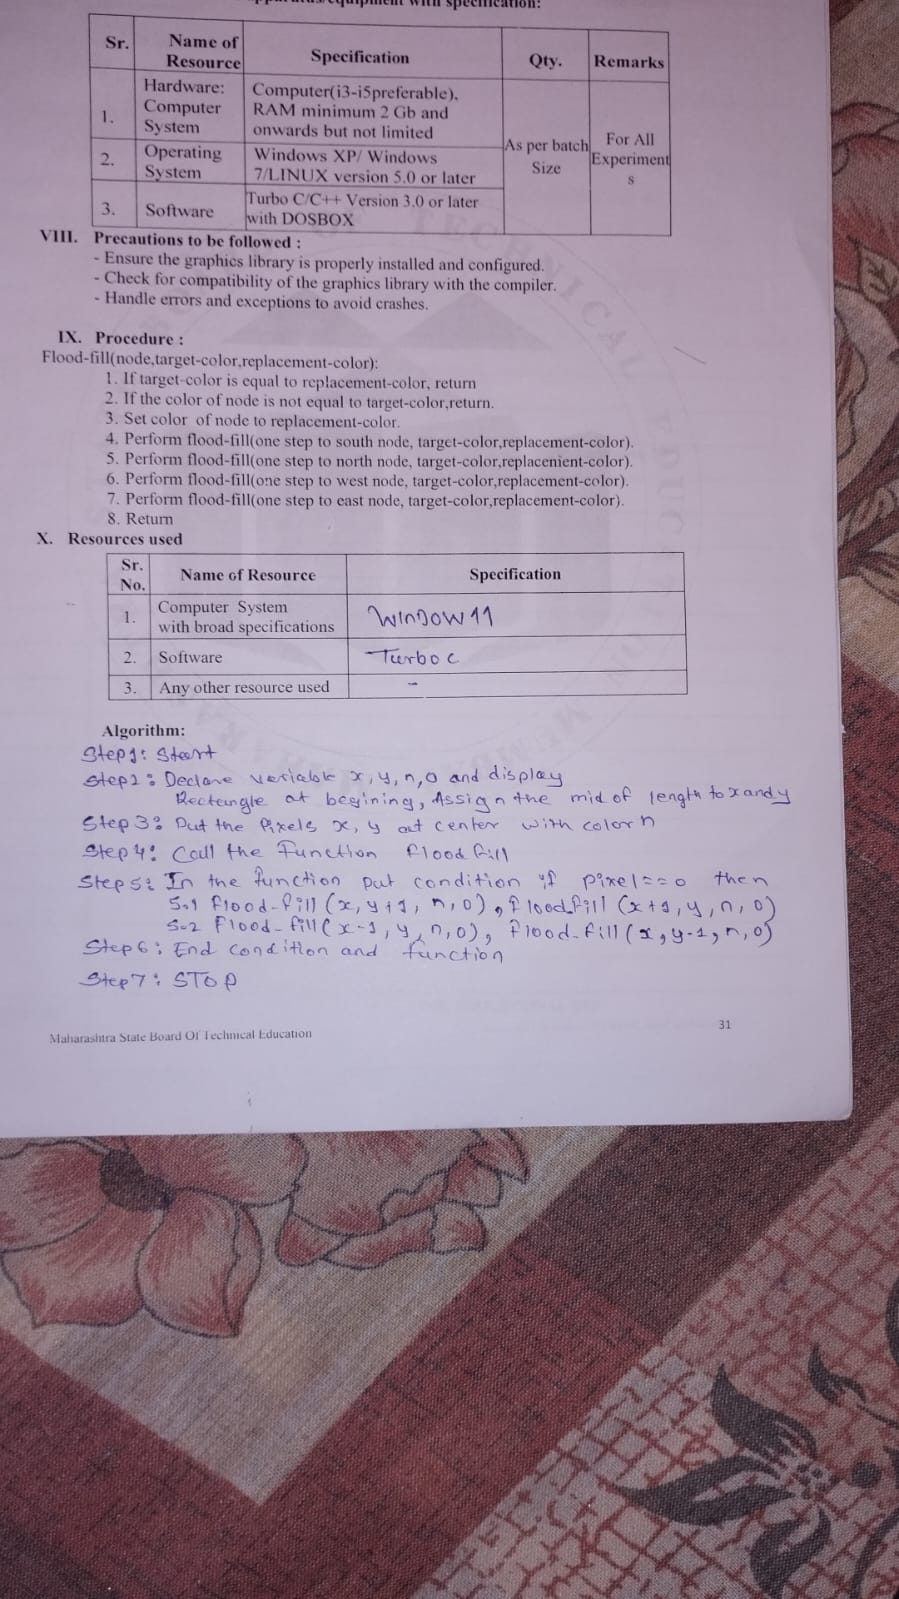 apparatus/equipment with specification:
Sr. Name of Resource Specification Qty. Remarks
1. Hardware: Computer System Computer(i3-i5preferable), RAM minimum 2 Gb and onwards but not limited As per batch Size For All Experiment s
2. Operating System Windows XP/ Windows 7/LINUX version 5.0 or later
3. Software Turbo C/C++ Version 3.0 or later with DOSBOX
VIII. Precautions to be followed :
- Ensure the graphics library is properly installed and configured.
- Check for compatibility of the graphics library with the compiler.
- Handle errors and exceptions to avoid crashes.
IX. Procedure :
Flood-fill(node,target-color,replacement-color):
1. If target-color is equal to replacement-color, return
2. If the color of node is not equal to target-color,return.
3. Set color of node to replacement-color.
4. Perform flood-fill(one step to south node, target-color,replacement-color).
5. Perform flood-fill(one step to north node, target-color,replacenient-color).
6. Perform flood-fill(one step to west node, target-color,replacement-color).
7. Perform flood-fill(one step to east node, target-color,replacement-color).
8. Return
X. Resources used
Sr. No. Name of Resource Specification
1. Computer System with broad specifications WINDOW 11
2. Software Turbo c
3. Any other resource used -
Algorithm:
Step1: Start
Step2: Declare variable x, y, n, o and display
Rectangle at begining, Assign the mid of length to x and y
Step 3: Put the Pixels x, y at center with color n
Step 4: Call the Function flood fill
Step 5: In the function put condition if pixel==o then
5.1 flood-fill (x, y+1, n, o), floodfill (x+1, y, n, o)
5.2 Flood-fill(x-1, y, n, o), flood-fill (x, y-1, n, o)
Step6: End condition and function
Step7: STOP
Maharashtra State Board Of Technical Education 31